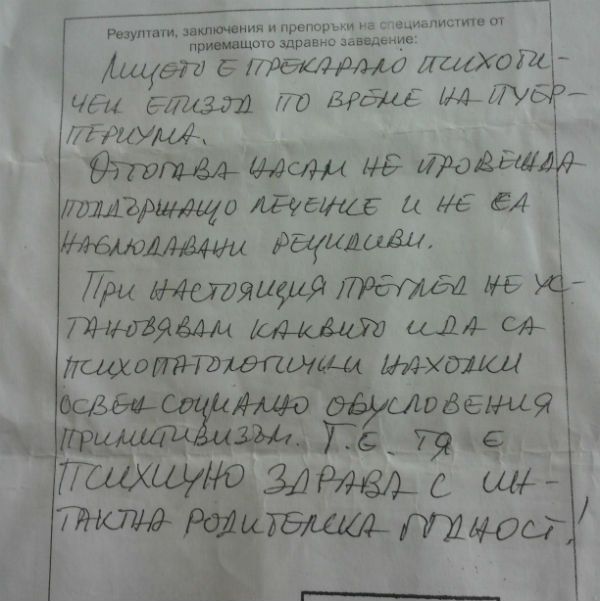 Резултати, заключения и препоръки на специалистите от
приемащото здравно заведение:
ЛИЦЕТО Е ПРЕКАРАЛО ПСИХОТИ-
ЧЕН ЕПИЗОД ПО ВРЕМЕ НА ПУЕР-
ПЕРИУМА.
ОТТОГАВА НАСАМ НЕ ПРОВЕЖДА
ПОДДЪРЖАЩО ЛЕЧЕНИЕ И НЕ СА
НАБЛЮДАВАНИ РЕЦИДИВИ.
ПРИ НАСТОЯЩИЯ ПРЕГЛЕД НЕ УС-
ТАНОВЯВАМ КАКВИТО И ДА СА
ПСИХОПАТОЛОГИЧНИ НАХОДКИ
ОСВЕН СОЦИАЛНО ОБУСЛОВЕНИЯ
ПРИМИТИВИЗЪМ. Т.Е. ТЯ Е
ПСИХИЧНО ЗДРАВА С ИН-
ТАКТНА РОДИТЕЛСКА ГОДНОСТ!